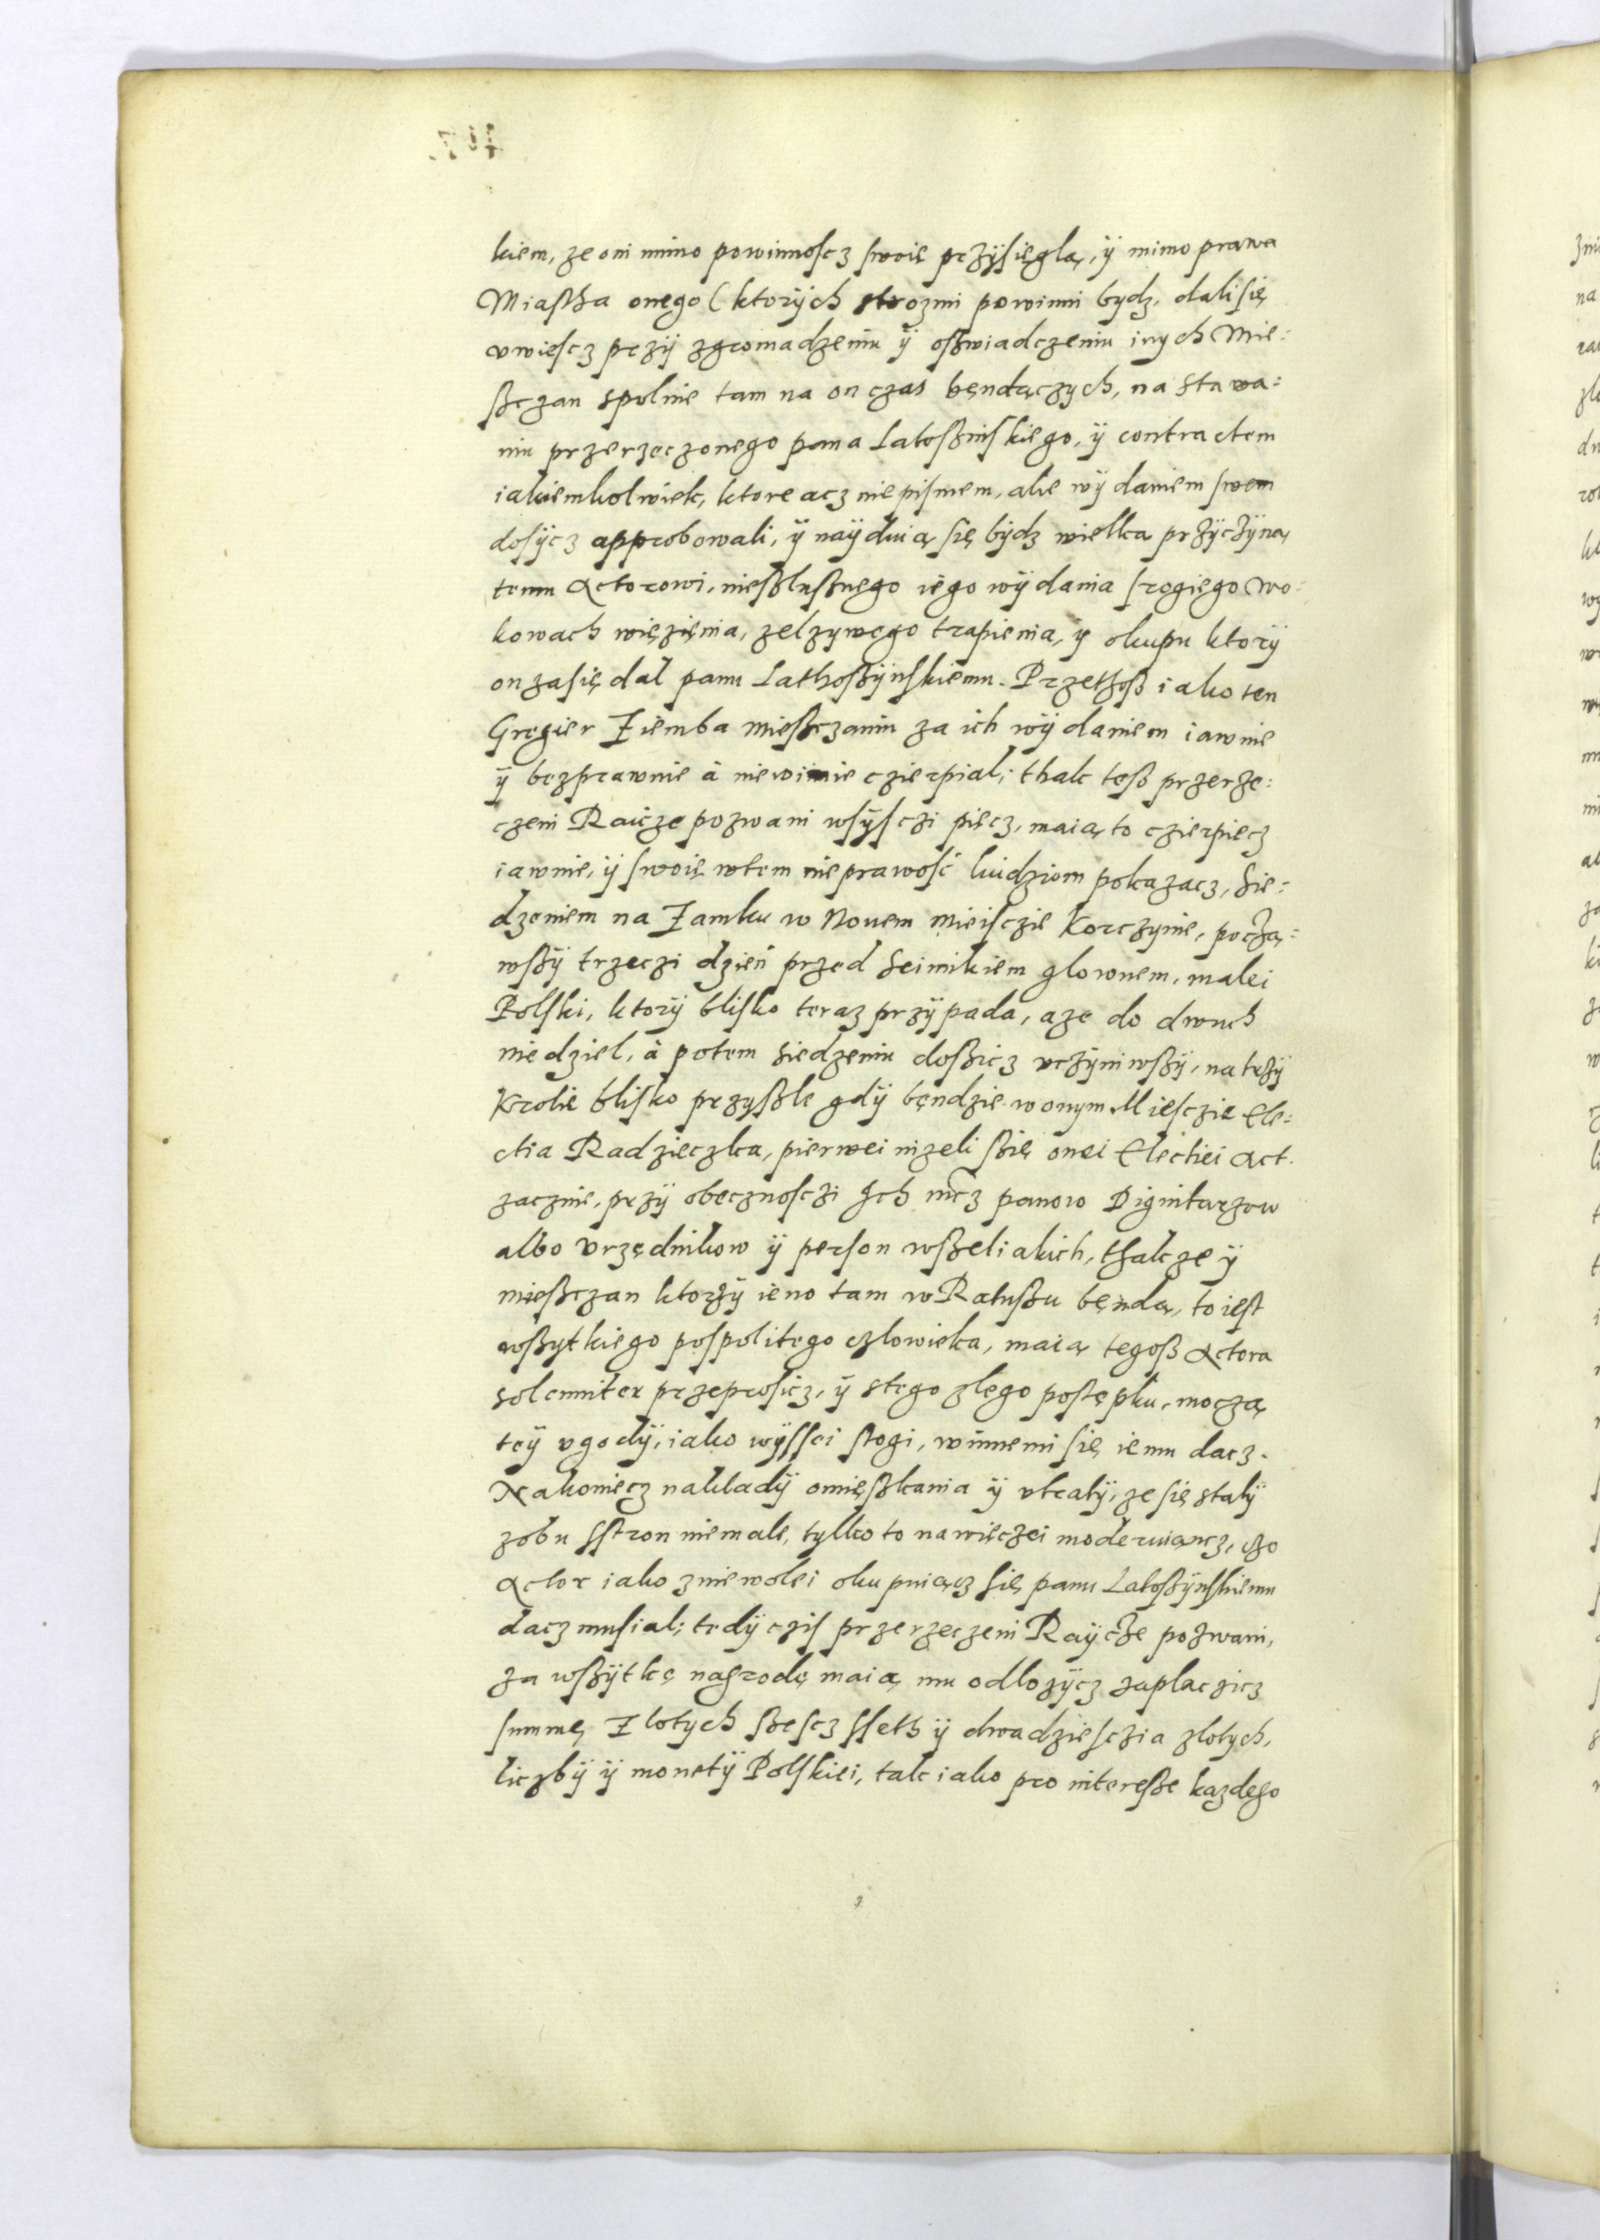 kiem, ze oni mimo powinnoscz swoię przÿsięglą, ÿ mimo prawa
Miastha onego (ktorÿch strozmi powinni bydz, dali się
uwiescz przÿ zgromadzeniu ÿ osßwiadczeniu inych Mie:
sßczan spolnie tam na on czas będączych, na stawa:
niu przerzeczonego pana Latoßinskiego, ÿ contractem
iakiemkolwiek, ktore acz nie pismem, ale wÿdaniem swem
dosÿcz approbowali, ÿ naÿduią się bÿdz wielka przÿczÿną
temu Actorowi, nießlußnego iego wÿdania srogiego w o:
kowach więzięnia, zelzywego trapienia, y okupu ktorÿ
on zasię dal panu Lathoßÿnskiemu. Przethoß iako ten
Gregier Ziemba mießczanin za ich wÿdaniem iawnie
ÿ bezprawnie à niewinnie czierpial; thak teß przerze:
czeni Raicze pozwani wsÿsczi pięcz, maią to czierpiecz
iawnie, ÿ swoię wtem nieprawość ludziom pokazacz, Sie:
dzeniem na Zamku w Novem mieisczie Korczynie, począ:
wßÿ trzeczi dzień przed Seimikiem glownem, malei
Polski, ktorÿ blisko teraz przÿpada, aze do dwuch
niedziel, à potem siedzeniu doßicz uczÿniwßÿ, na trzÿ
Krolie blisko przyßle gdÿ będzie w onym Miesczie Ele:
ctia Radzieczka, pierwei nizeli ßię onei Electiei Act.
zacznie, przÿ obecznosczi Ich mcz panow Dignitarzow
albo Urzędnikow ÿ person wßeliakich, thakze ÿ
mießczan ktorzÿ ieno tam w Ratußu będą, to iest
wßytkiego pospolitego czlowieka, maią tegoß Actora
solenniter przeprosicz, ÿ stego zlego postępku, moczą
teÿ ugodÿ, iako wÿssei stogi, winnemi się iemu dacz.
Nakoniecz nakladÿ omięßkania ÿ utratÿ, ze się stalÿ
zobu sstron niemale, tylko to nawięczei moderuiącz, czo
Actor iako zniewolei okupuiącz się panu Latoßÿnskiemu
dacz musial; tedÿ czis przerzeczeni Raÿcze pozwani,
za wßÿtkę nagrodę maią mu odlozÿcz zaplaczicz
summę Zlotych ßescz sseth ÿ dwadziesczia zlotych,
liczbÿ ÿ monetÿ Polskiei, tak iako pro intereße kazdego